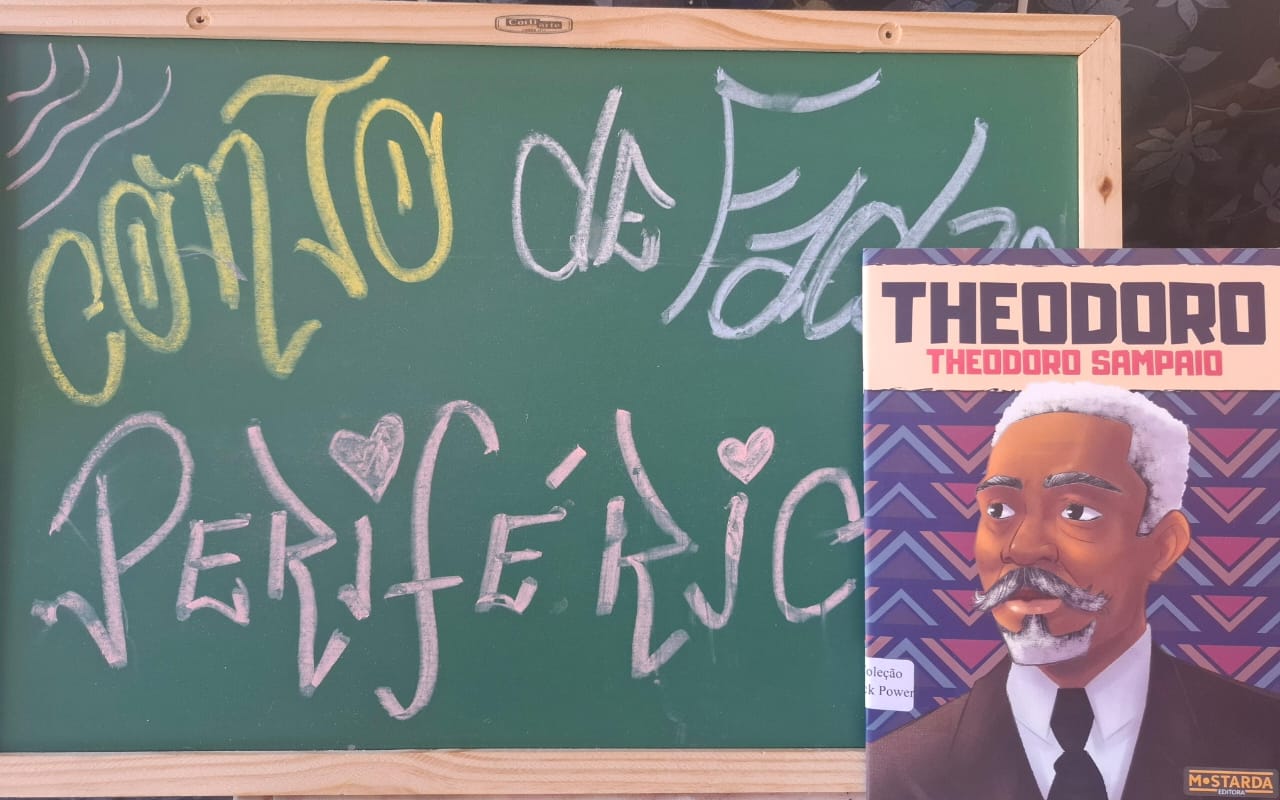 Corti arte
CONTO de Fadas
PERIFÉRIC
THEODORO
THEODORO SAMPAIO
oleção
ck Power
MOSTARDA
EDITORA